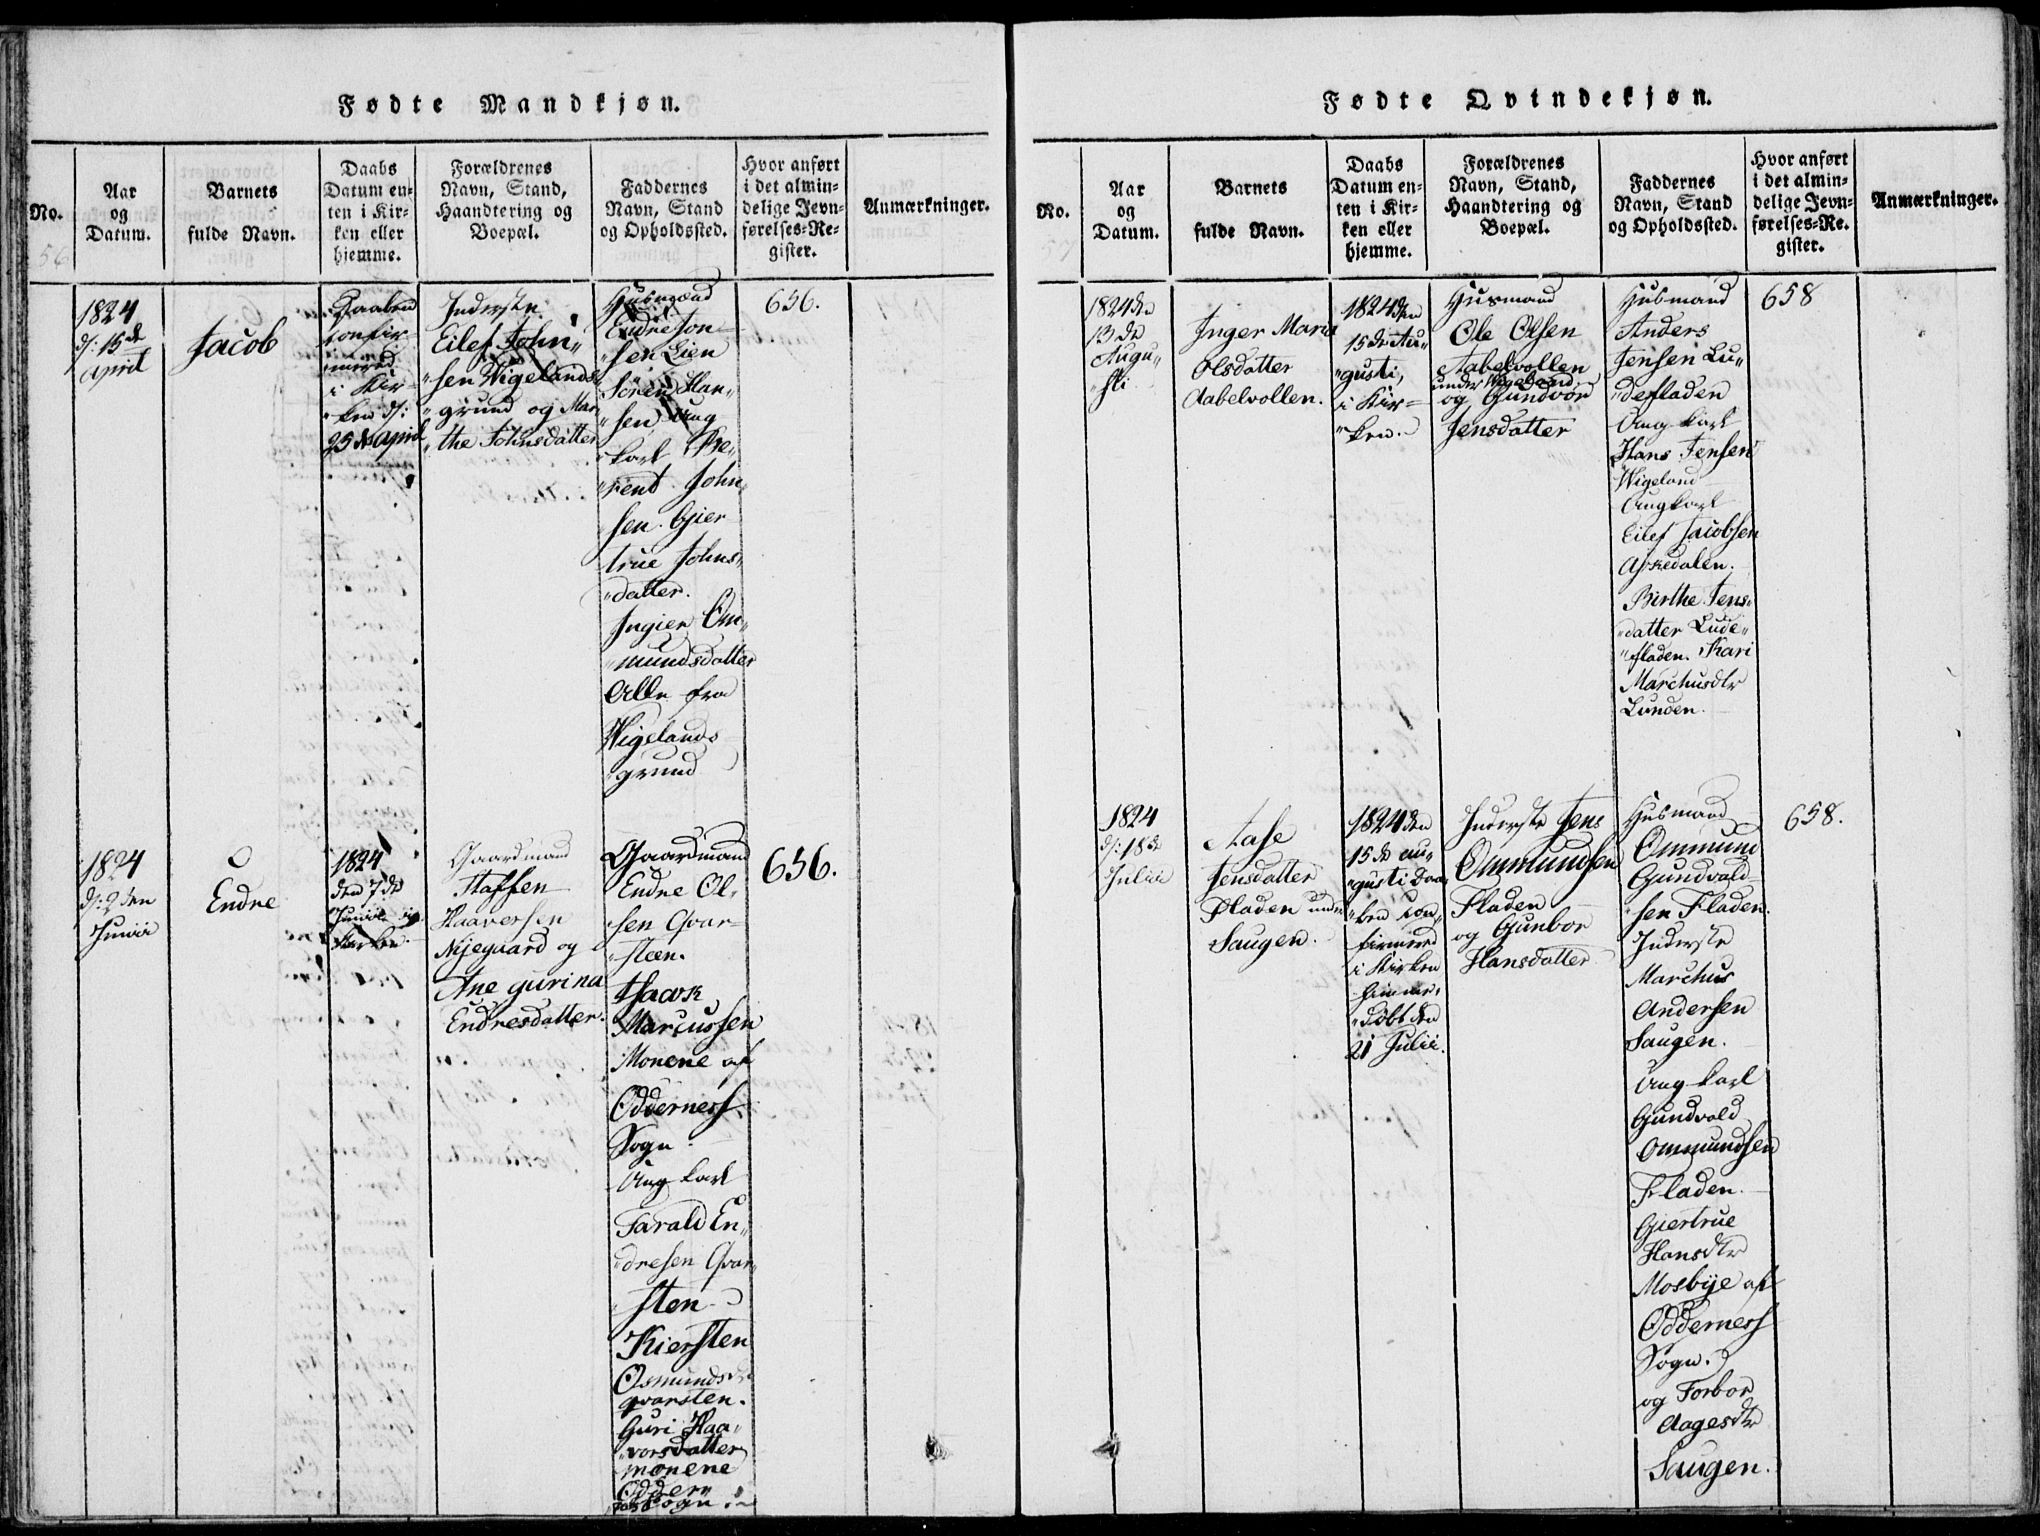 Fødte Mandkjøn.
No.
Aar
og
Datum.
Barnets
fulde Navn.
Daabs
Datum en-
ten i Kir-
ken eller
hjemme.
Forældrenes
Navn, Stand,
Haandtering og
Boepæl.
Faddernes
Navn, Stand
og Opholdssted.
Hvor anført
i det almin-
delige Jevn-
førelses-Re-
gister.
Anmærkninger.
56
1824
d: 15de
April
Jacob
Daaben
confir-
mered
i Kir-
ken d:
25de April
Inderste
Eilef John-
sen Wigelands
grund og Mar-
the Johnsdatter
Huusmand
Endre Jon-
sen Lien
Søren Han-
sen Ung
karl Be-
rent John-
sen. Gier-
true Johns-
datter.
Ingier Om-
mundsdatter
Alle fra
Wigelands
grund
656.
1824
d: 2den
Junii
Endre
1824
den 7de
Junii i
Kirken.
Gaardmand
Staffen
Haaversen
Nyegaard og
Ane gurina
Endresdatter.
Gaardmand
Endre Ol-
sen Qvar-
steen.
Isack
Marcussen
Monene af
Odderness
Sogn
Ung karl
Tarald En-
dresen Qvar-
sten
Kiersten
Osmundsd
qvarsten.
Guri Haa-
vorsdatter
monene
Oddern
Sogn
656.
Fødte Qvindekjøn.
No.
Aar
og
Datum.
Barnets
fulde Navn.
Daabs
Datum en-
ten i Kir-
ken eller
hjemme.
Forældrenes
Navn, Stand,
Haandtering og
Boepæl.
Faddernes
Navn, Stand
og Opholdssted.
Hvor anført
i det almin-
delige Jevn-
førelses-Re-
gister.
Anmærkninger.
1824 den
13de
Augu-
sti
Inger Maria
Olsdatter
Aabelvollen.
1824 den
15de Au-
gusti,
i Kir-
ken.
Husmand
Ole Olsen
Aabelvollen
under Wigeland
og Gundvor
Jensdatter
Husmand
Anders
Jensen Lu-
defladen
Ung karl
Hans Jensen
Wigeland
Ungkarl
Eilef Jacobsen
Askedalen.
Birthe Jens-
datter Lude-
fladen. Kari
Marchusdtr
Lunden.
658
1824
d: 18de
Julii
Aase
Jensdatter
Fladen under
Saugen.
1824 den
15de au-
gusti Daa-
ben con-
firmered
i Kirken
hiemme-
döbt den
21 Julii.
Inderste Jens
Ommundsen
Fladen
og Gunbor
Hansdatter
Husmand
Ommund
Gundvald-
sen Fladen.
Inderste
Marchus
Andersen
Saugen.
Ung karl
Gundvald
Ommundsen
Fladen.
Giertrue
Hansdtr
Mosbye af
Odderness
Sogn.
og Torbor
Aagesdtr
Saugen.
658.